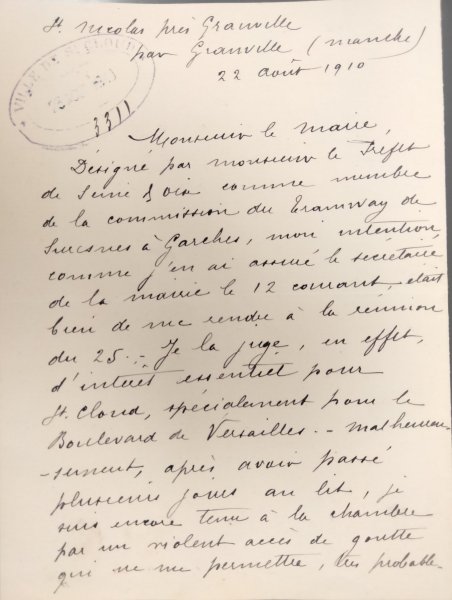 St. Nicolas près Granville
par Granville (manche)
22 août 1910
VILLE DE ST CLOUD
3311
Monsieur le maire,
Désigné par monsieur le Préfet
de Seine & Oise comme membre
de la commission du Tramway de
Suresnes à Garches, mon intention,
comme j'en ai assuré le secrétaire
de la mairie le 12 courant, était
bien de me rendre à la réunion
du 25. - Je la juge, en effet,
d'intérêt essentiel pour
St. Cloud, spécialement pour le
Boulevard de Versailles. - malheureu-
-sement, après avoir passé
plusieurs jours au lit, je
suis encore tenu à la chambre
par un violent accès de goutte
qui ne me permettra, très probable-